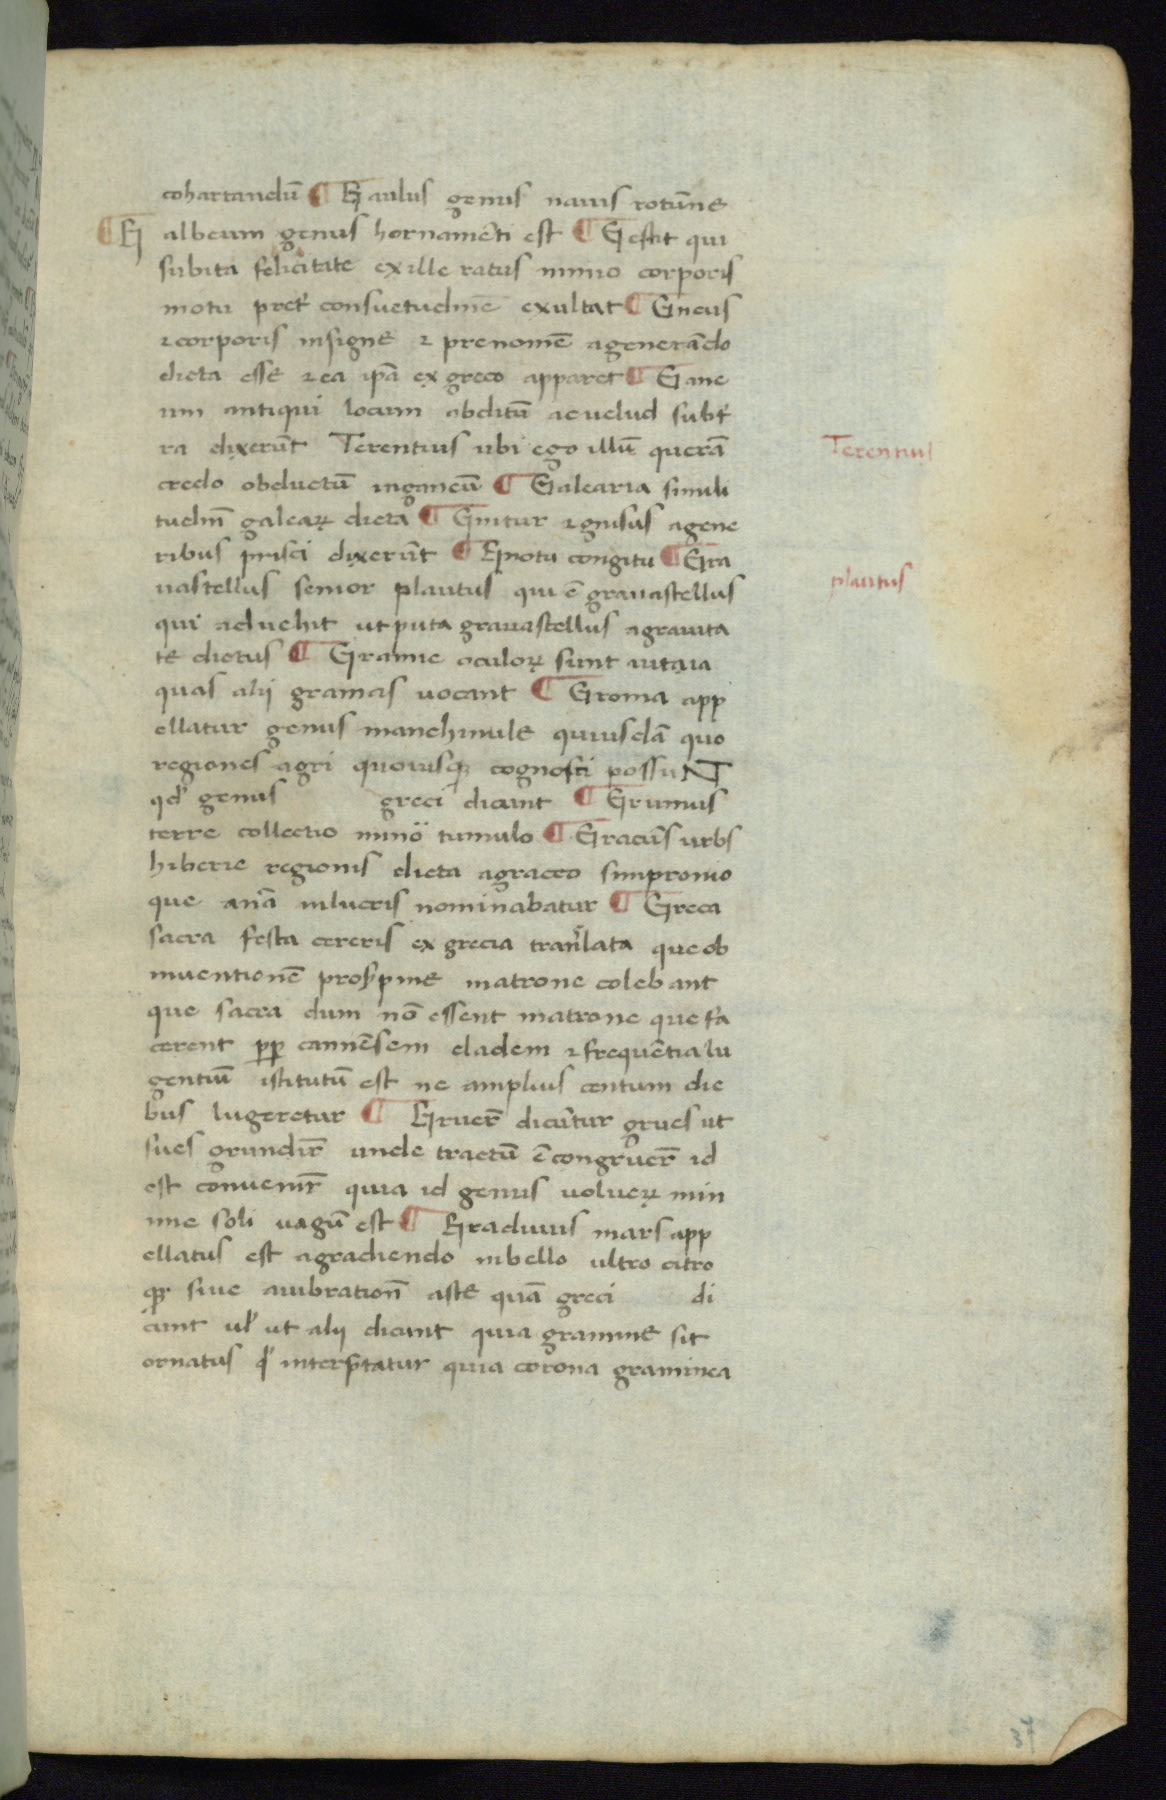 cohartandū ¶ Gaulus genus nauis rotūne
¶ G albeum genus hornamēti est ¶ Gestit qui
subita felicitate exille ratus nimio corporis
motu pret consuetudinē exultat ¶ Gneus
⁊ corporis insigne ⁊ prenomē agenerādo
dicta esse ⁊ ea ipā ex greco apparet ¶ Gane
um antiqui locum abditū ac uelud subt
ra dixerūt Terentius ubi ego illū querā
Terentius
credo obductū inganeū ¶ Galearia simili
tudīe galeaꝝ dicta ¶ Gnitur ⁊ gnisus agene
ribus prisci dixerūt ¶ Gnotu congitu ¶ Gra
uastellus senior plautus qui ē grauastellus
plautus
qui aduehit ut puta grauastellus agrauita
te dictus ¶ Gramie oculoꝝ sunt uitia
quas alij gramas uocant ¶ Groma app
ellatur genus machinule quiusdā quo
regiones agri quoiusqȝ cognosci possuNT
qd genus greci dicunt ¶ Grumus
terre collectio minoͬ tumulo ¶ Gracūs urbs
hiberie regionis dicta agracco simpronio
que anā inlucris nominabatur ¶ Greca
sacra festa cereris ex grecia tranſlata que ob
inuentionē prosꝑpine matrone colebant
que sacra dum nō essent matrone que fa
cerent ꝓp cannēsem cladem ⁊ frequētia lu
gentiū istitutū est ne amplius centum die
bus lugeretur ¶ Gruer̄ dicūtur grues ut
sues grundir̄ unde tractū ē congruer̄ id
est conuenir̄ quia id genus uolucꝝ min
ime soli uagū est ¶ Gradiuus mars app
ellatus est agradiendo inbello ultro citro
qȝ siue auibrationē aste quā greci di
cunt ul ut alij dicunt quia gramine sit
ornatus qd interp̄tatur quia corona graminea
37